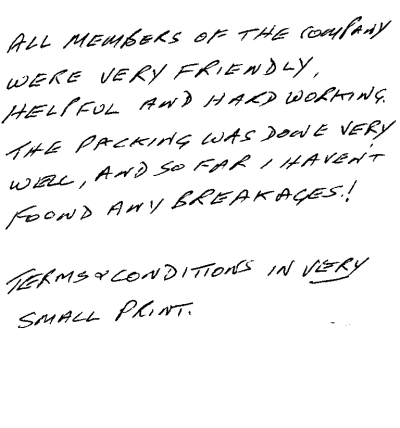 ALL MEMBERS OF THE COMPANY
WERE VERY FRIENDLY,
HELPFUL AND HARD WORKING.
THE PACKING WAS DONE VERY
WELL, AND SO FAR I HAVEN'T
FOUND ANY BREAKAGES.!
TERMS & CONDITIONS IN VERY
SMALL PRINT.